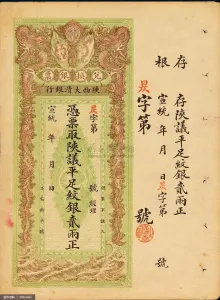 兌換銀票
陝西大清銀行
字第 號 經理
憑票取陝議平足紋銀貳兩正
宣統 年 月 日
存根
字第 號
存陝議平足紋銀貳兩正
宣統 年 月 日 字第 號